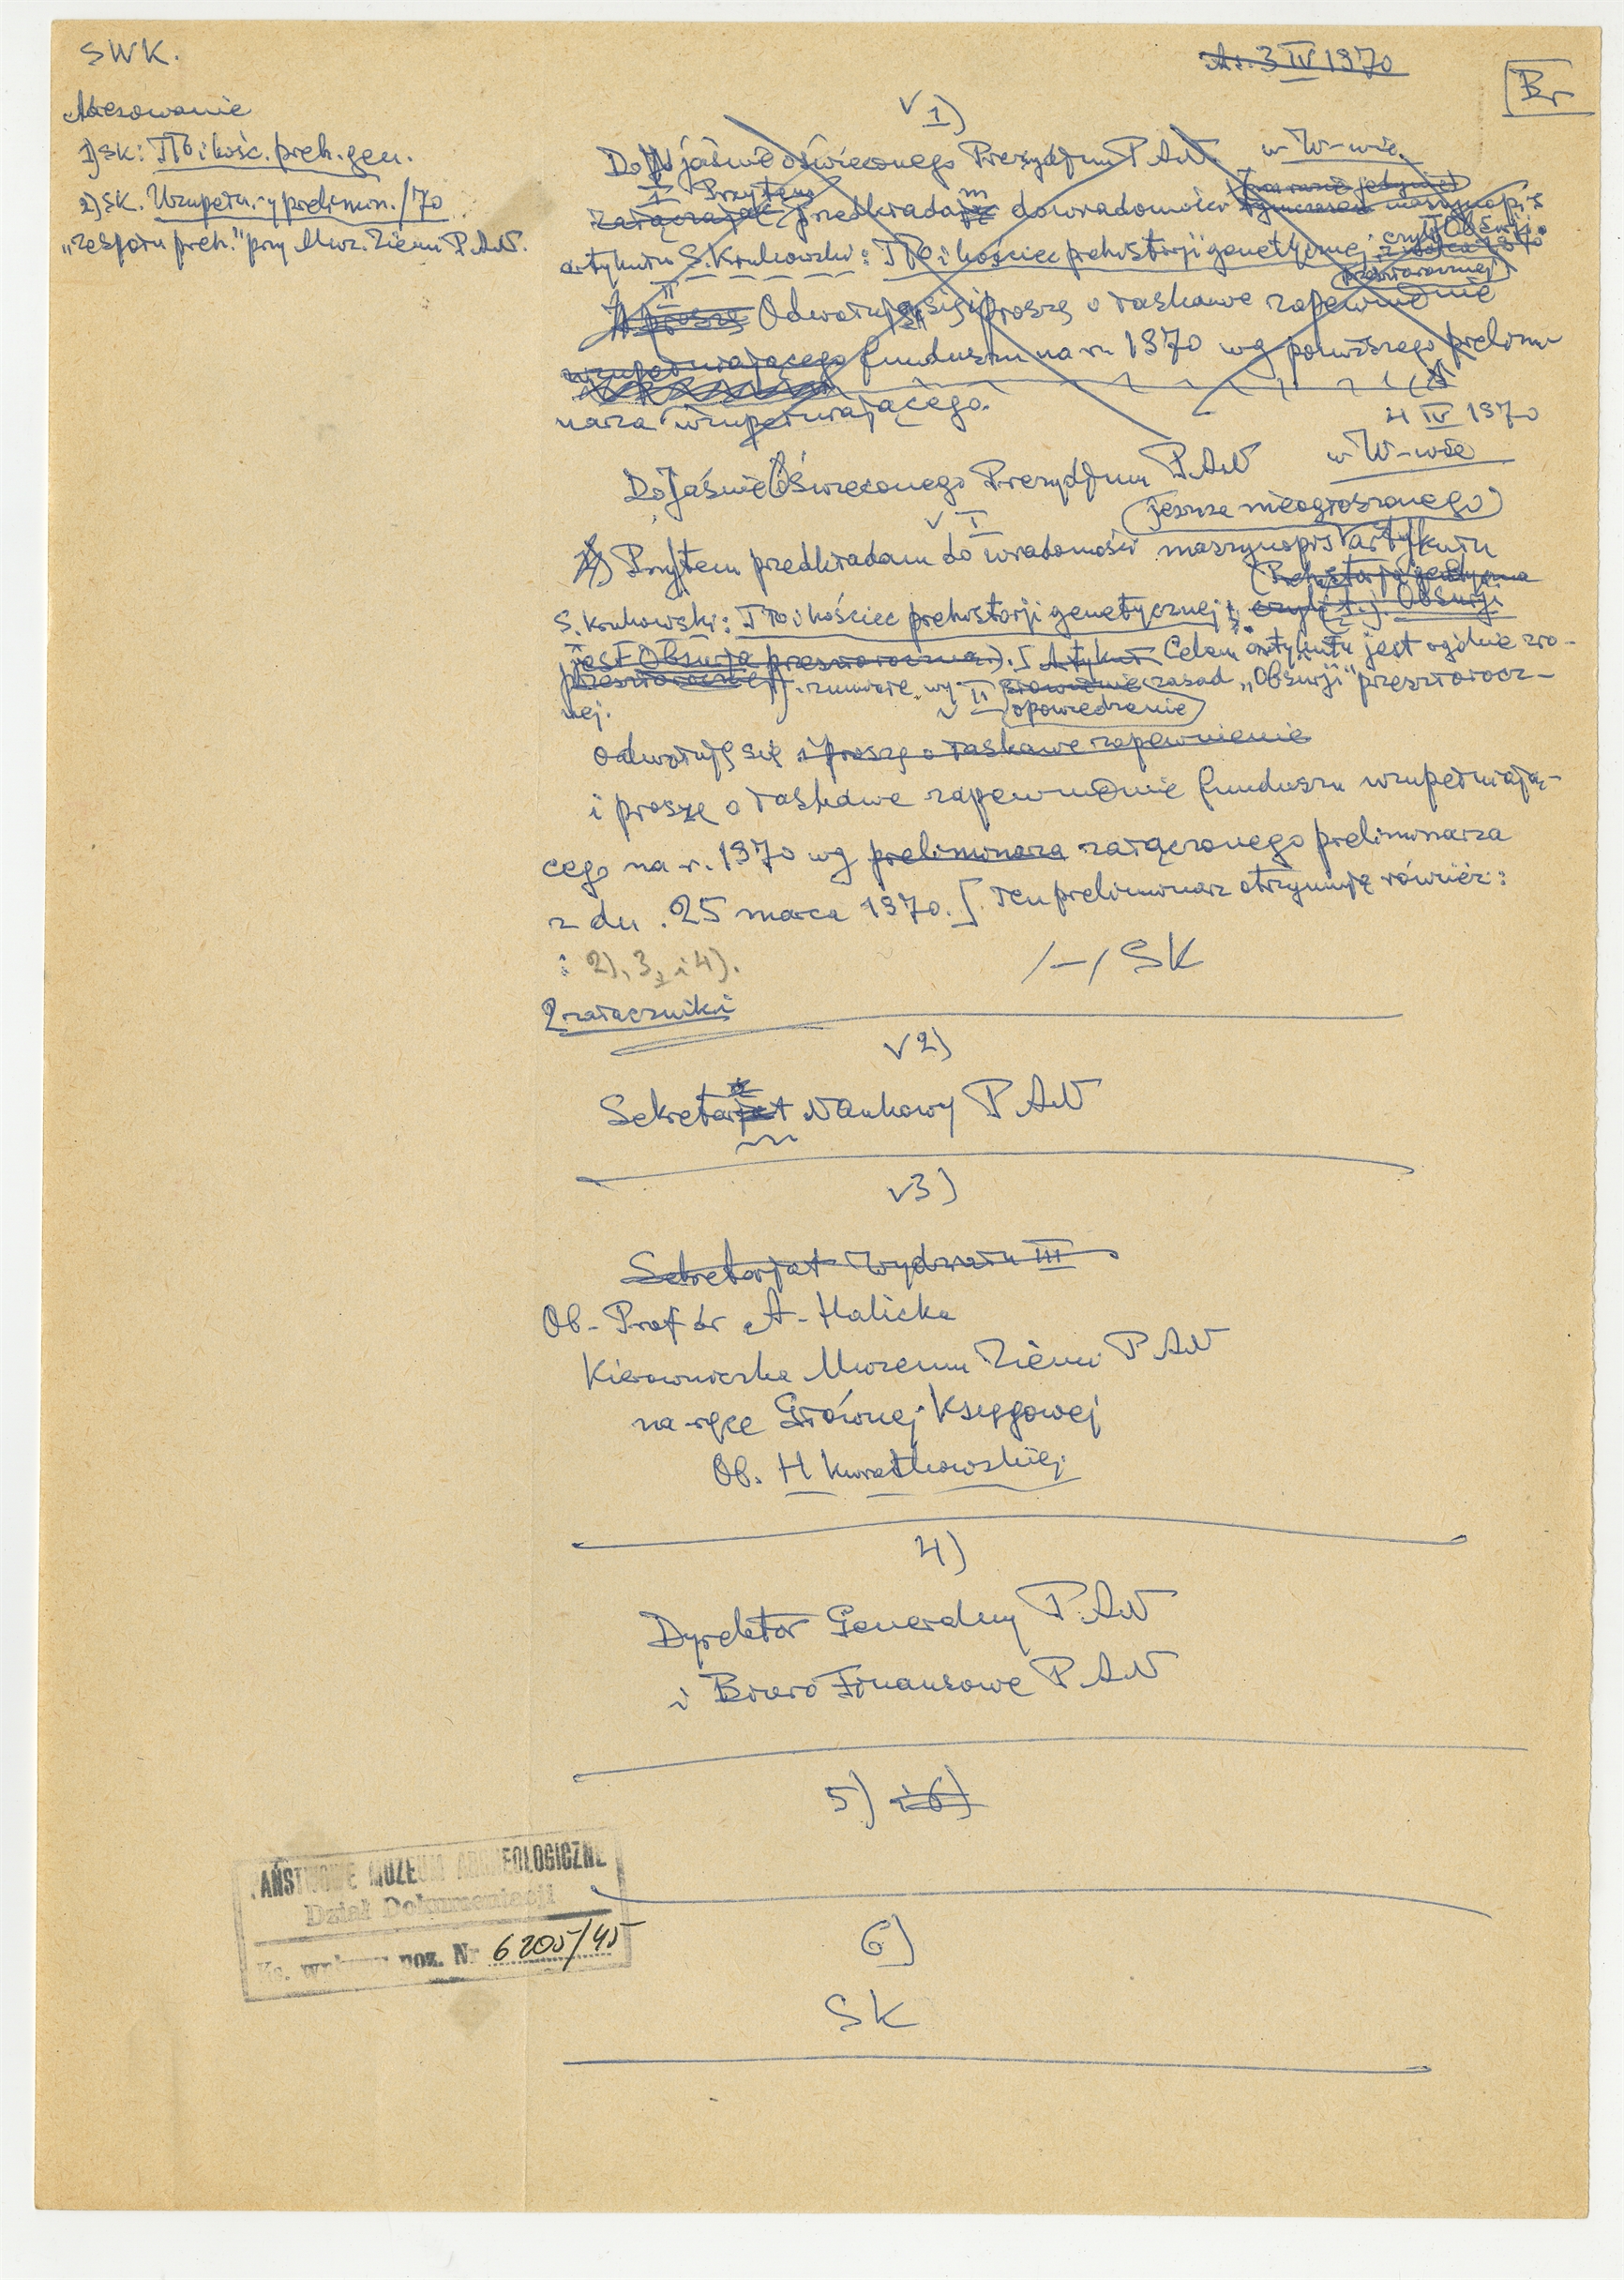 SWK.
A. 3 IV 1970
Br
Adresowanie
1) SK: Tło i kośc. preh. gen.
2) SK. Uzupełn.-y prelimin./70
„Zespołu preh." przy Muz. Ziemi P.A.N.
v 1)
Do Jaśnie oświeconego Prezydjum P.A.N. w W-wie.
I Przytem
załączając przedkładam do wiadomości maszynopis
artykułu S. Krukowski: Tło i kościec prehistorji genetycznej czyli Obsurji
przeszłorocznej
II
proszę Odwołuję się i proszę o łaskawe zapewnienie
uzupełniającego funduszu na r. 1970 wg powyższego prelimi-
narza uzupełniającego.
4 IV 1970
Do Jaśnie Oświeconego Prezydjum P.A.N w W-wie
v I
(jeszcze nieogłoszonego)
1) Przytem przedkładam do wiadomości maszynopis artykułu
(Prehistorja genetyczna
S. Krukowski: Tło i kościec prehistorji genetycznej, czyli t.j. Obsurji
jest Obsurja przeszłoroczna). [Artykuł Celem artykułu jest ogólne zro-
przeszłorocznej). zumiałe wy zasad „Obsurji" przeszłorocz-
nej.
v II (opowiedzenie)
Odwołuję się i proszę o łaskawe zapewnienie
i proszę o łaskawe zapewnienie funduszu uzupełniają-
cego na r. 1970 wg preliminarza załączonego preliminarza
z dn. 25 marca 1970. [. Ten preliminarz otrzymują również:
: 2), 3, i 4).
/-/ SK
2 załączniki
v 2)
Sekretarz Naukowy P.A.N
v 3)
Sekretarjat Wydziału III
Ob. Prof dr A. Halicka
Kierowniczka Muzeum Ziemi P.A.N
na ręce Głównej Księgowej
Ob. H Kwiatkowskiej
4)
Dyrektor Generalny P.A.N
i Biuro Finansowe P.A.N
5) i 6)
PAŃSTWOWE MUZEUM ARCHEOLOGICZNE
Dział Dokumentacji
Ks. wpływu poz. Nr 6205/45
6)
SK